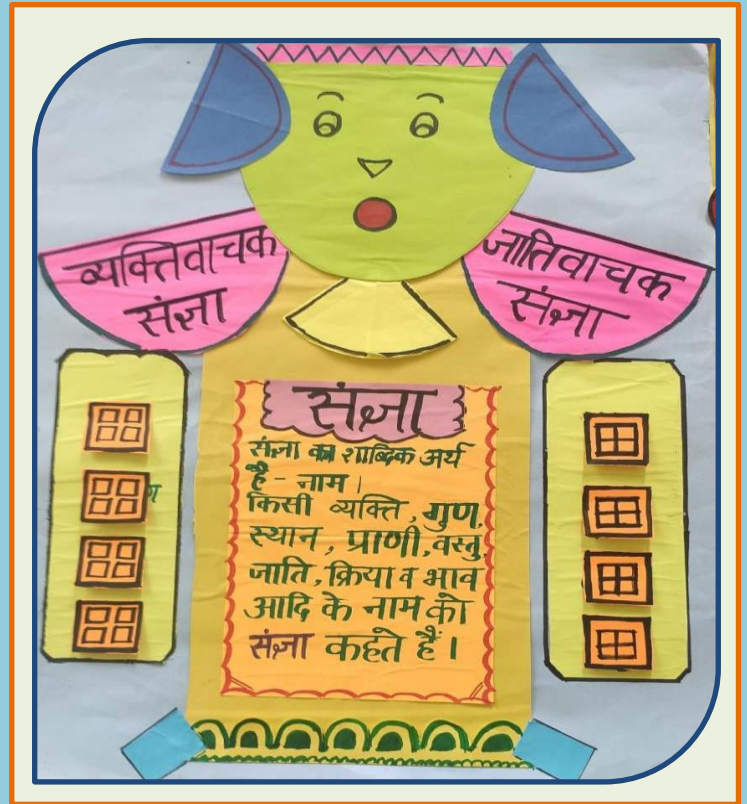 व्यक्तिवाचक
संज्ञा
जातिवाचक
संज्ञा
संज्ञा
संज्ञा का शाब्दिक अर्थ
है - नाम।
किसी व्यक्ति, गुण,
स्थान, प्राणी, वस्तु,
जाति, क्रिया व भाव
आदि के नाम को
संज्ञा कहते हैं।